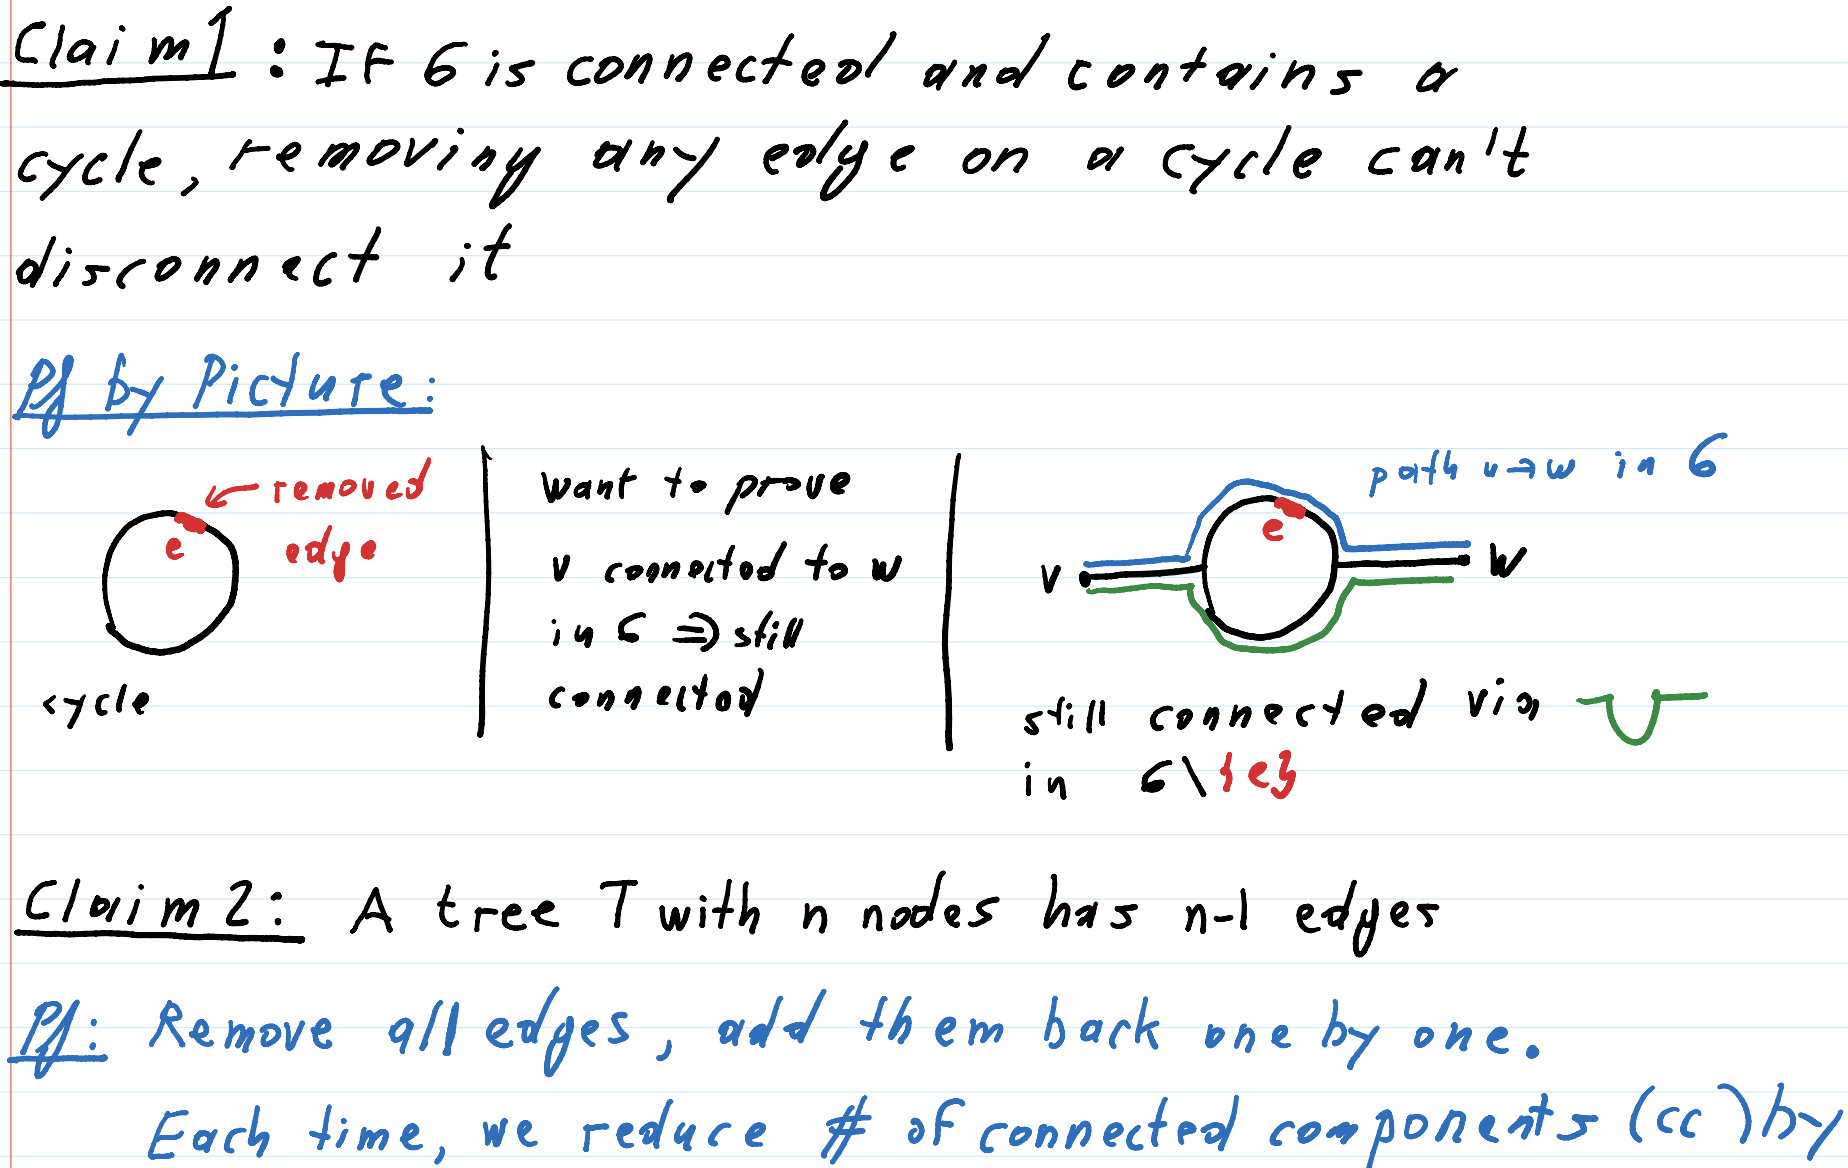 Claim 1: If G is connected and contains a
cycle, removing any edge on a cycle can't
disconnect it
Pf by Picture:
removed
edge
e
cycle
want to prove
v connected to w
in G ⇒ still
connected
path u→w in G
e
v
w
still connected via
in G\{e}
Claim 2: A tree T with n nodes has n-1 edges
Pf: Remove all edges, add them back one by one.
Each time, we reduce # of connected components (cc) by